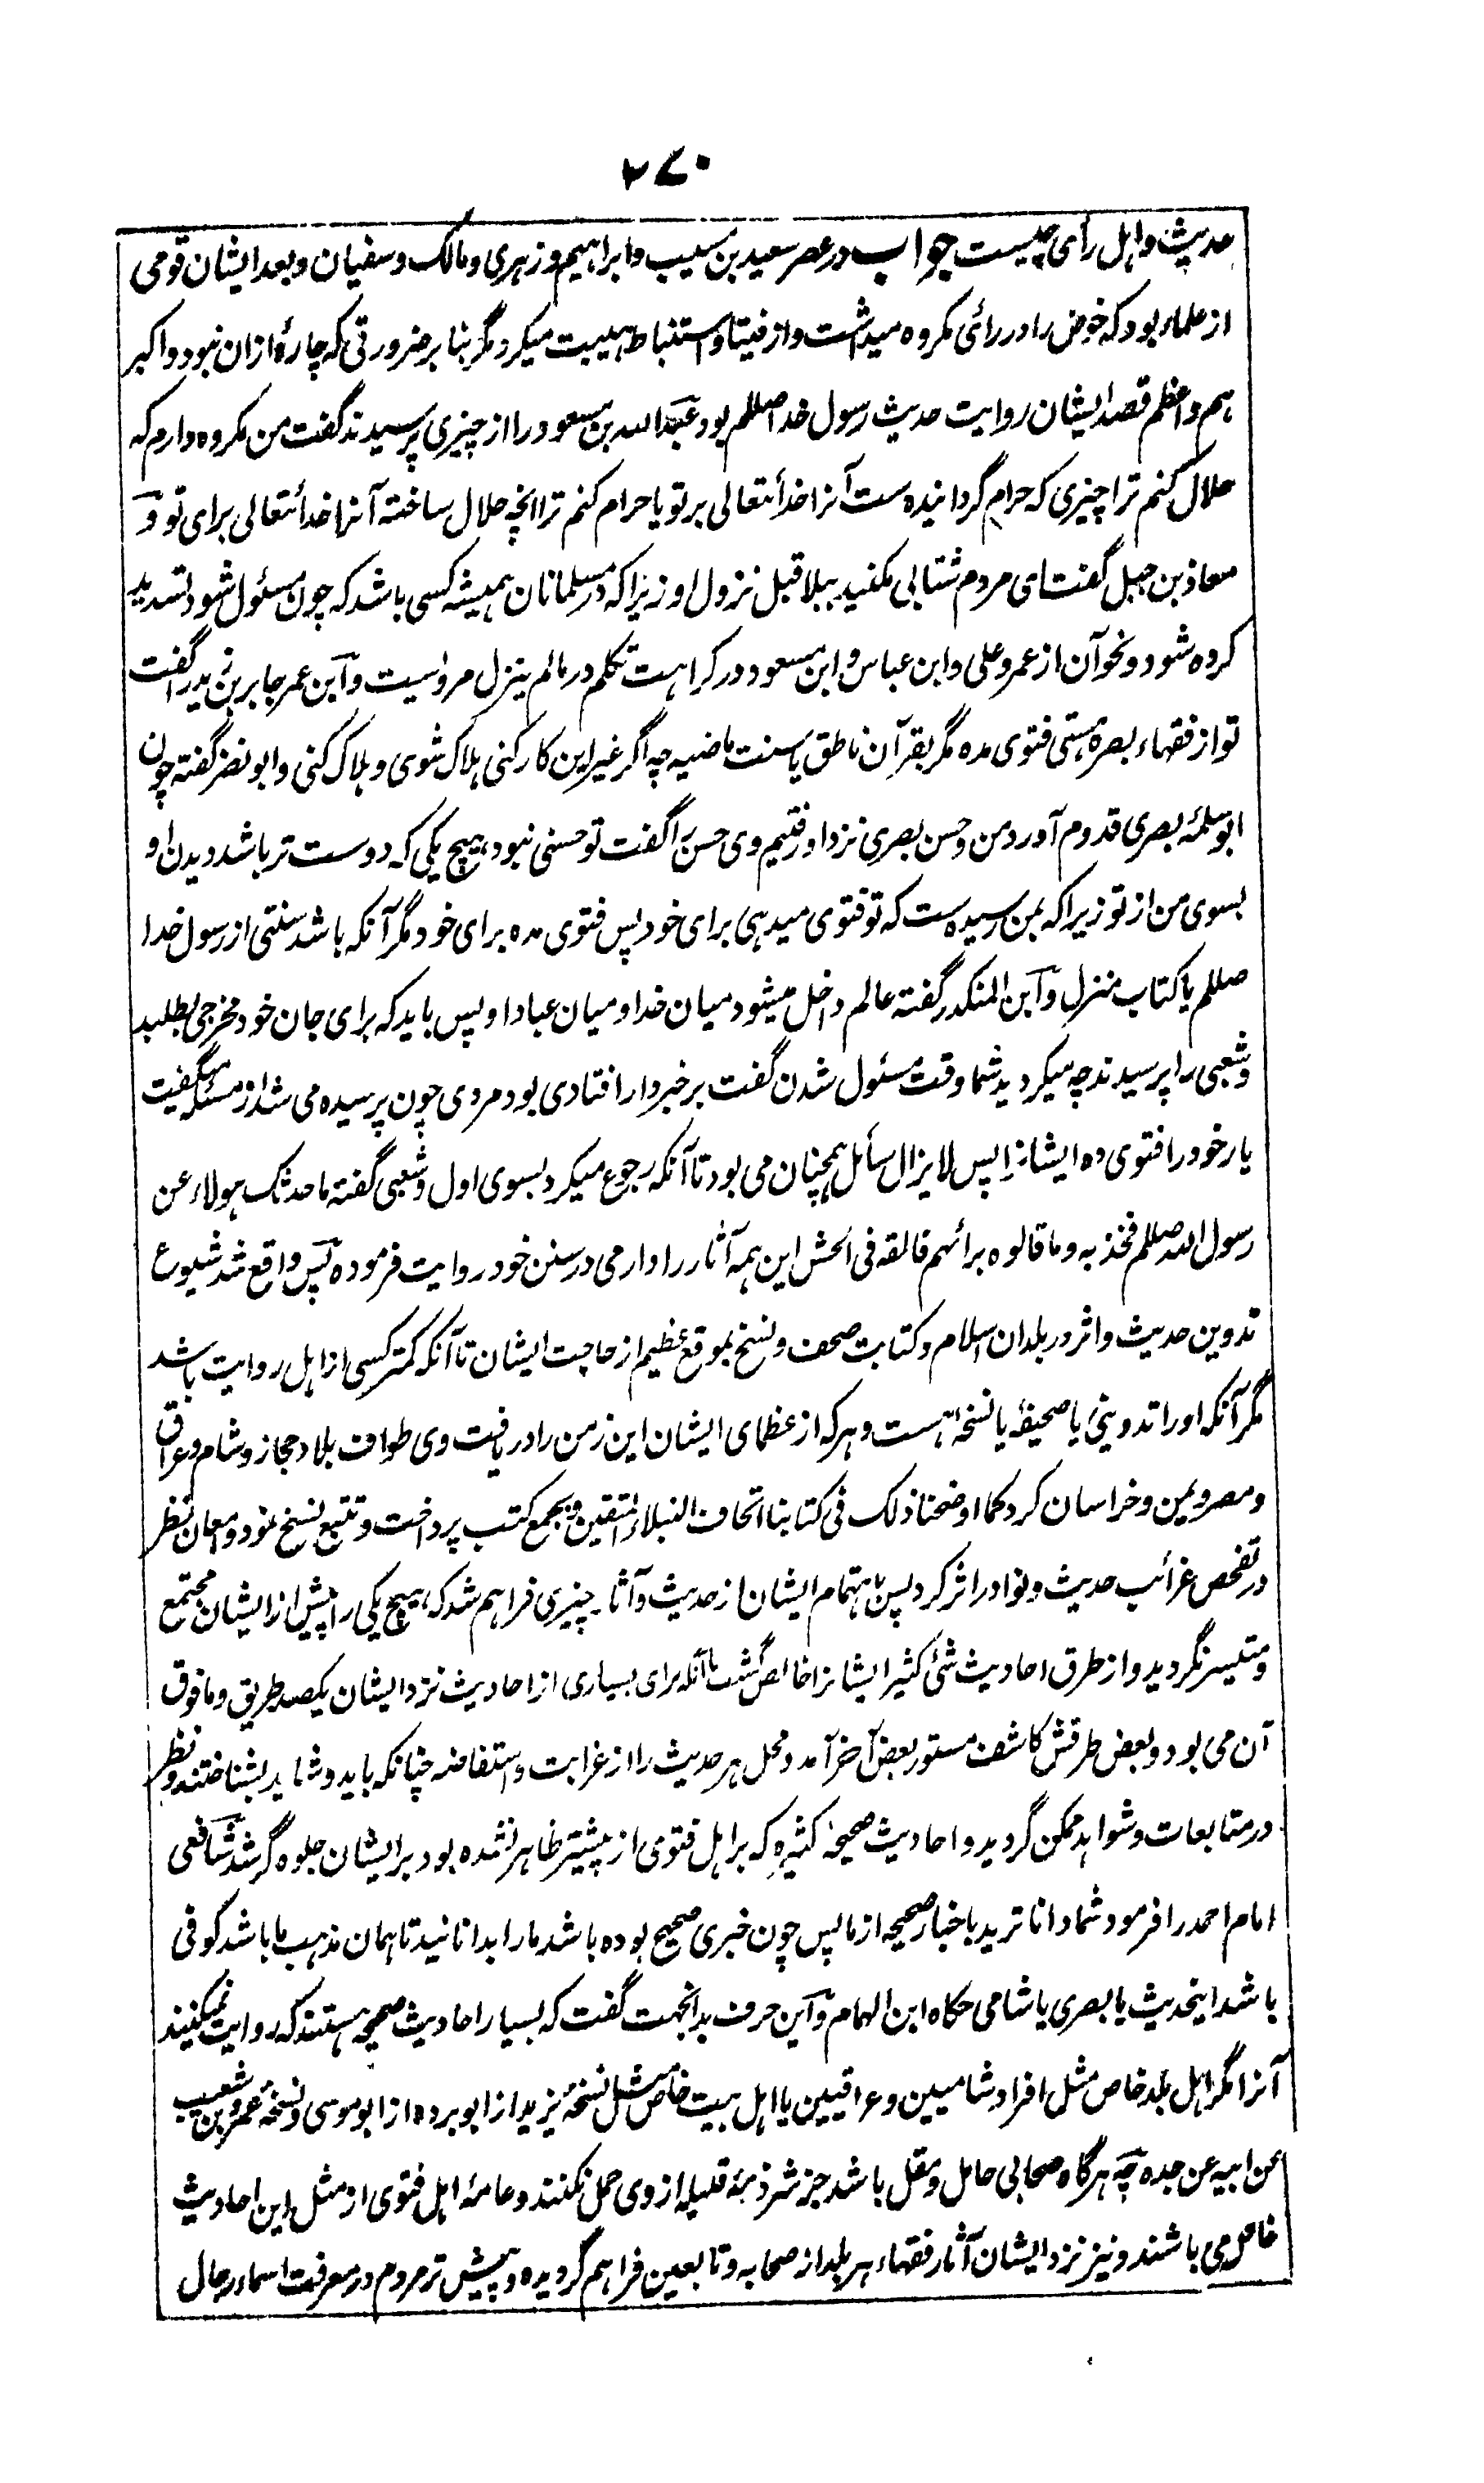 ۲۷۰
حدیث و اہل رأی چیست جواب در عصر سعید بن مسیب و ابراہیم و زہری و مالک و سفیان و بعد ایشان قومی
از علماء بود کہ خوض را در رائی مکروہ میداشت و از فیتا و استنباط ہیبت میکرد مگر بنا بر ضرورتی کہ چارۂ ازان نبود و اکبر
ہم و اعظم قصد ایشان روایت حدیث رسول خدا صللم بود عبد اللہ بن مسعود را از چیزی پرسیدند گفت من مکروہ دارم کہ
حلال کنم ترا چیزی کہ حرام گردانیدہ ست آنرا خدأتعالی بر تو یا حرام کنم ترا انچہ حلال ساختہ آنرا خدأتعالی برای تو و
معاذ بن جبل گفت ای مردم شتابی مکنید ببلا قبل نزول او زیرا کہ در مسلمانان ہمیشہ کسی باشد کہ چون مسئول شود تسدید
کردہ شود و نحو آن از عمر و علی و ابن عباس و ابن مسعود در کراہت تکلم در مالم ینزل مرویست و ابن عمر جابر بن زید را گفت
تو از فقہاء بصرہ ہستی فتوی مدہ مگر بقرآن ناطق یا سنت ماضیہ چہ اگر غیر این کار کنی ہلاک شوی و ہلاک کنی و ابو نضر گفتہ چون
ابو سلمۂ بصری قدوم آورد من و حسن بصری نزد او رفتیم وی حسن را گفت تو حسنی نبود ہیچ یکی کہ دوست تر باشد دیدن او
بسوی من از تو زیرا کہ بمن رسیدہ ست کہ تو فتوی میدہی برای خود پس فتوی مدہ برای خود مگر آنکہ باشد سنتی از رسول خدا
صللم یا کتاب منزل و ابن المنکدر گفتہ عالم داخل میشود میان خدا و میان عباد او پس باید کہ برای جان خود مخرجی بطلبد
و شعبی را پرسیدند چہ میکردید شما وقت مسئول شدن گفت بر خبردار افتادی بود مردی چون پرسیدہ می شد از مسئلہ میگفت
یار خود را فتوی دہ ایشانرا پس لایزال سأل ہمچنان می بود تا آنکہ رجوع میکرد بسوی اول و شعبی گفتہ ما حدثک ہولاء عن
رسول اللہ صللم فخذ بہ و ما قالوہ برائہم فالقہ فی الحش این ہمہ آثار را دارمی در سنن خود روایت فرمودہ پس واقع شد شیوع
تدوین حدیث و اثر در بلدان اسلام و کتابت صحف و نسخ بموقع عظیم از حاجت ایشان تا آنکہ کمتر کسی از اہل روایت باشد
مگر آنکہ او را تدوینی یا صحیفۂ یا نسخۂ ہست و ہر کہ از عظمای ایشان این زمن را دریافت وی طواف بلاد حجاز و شام و عراق
و مصر و یمن و خراسان کرد کما اوضحنا ذلک فی کتابنا اتحاف النبلاء المتقین و بجمع کتب پرداخت و تتبع نسخ نمود و امعان نظر
در تفحص غرائب حدیث و نوادر اثر کرد پس باہتمام ایشان از حدیث و آثار چیزی فراہم شد کہ ہیچ یکی را پیش از ایشان مجتمع
و متیسر نگردید و از طرق احادیث شئ کثیر ایشانرا خالص گشت تا آنکہ برای بسیاری از احادیث نزد ایشان یکصد طریق و مافوق
آن می بود و بعض طرقش کاشف مستور بعض آخر آمد و محل ہر حدیث را از غرابت و استفاضہ چنانکہ باید و شاید بشناختند و نظر
در متابعات و شواہد ممکن گردید و احادیث صحیحۂ کثیرہ کہ بر اہل فتوی از پیشتر ظاہر نشدہ بود بر ایشان جلوہ گر شد شافعی
امام احمد را فرمود شما داناترید باخبار صحیحہ از ما پس چون خبری صحیح بودہ باشد ما را بدانانید تا ہمان مذہب ما باشد کوفی
باشد اینحدیث یا بصری یا شامی حکاہ ابن الہمام و این حرف بدانجہت گفت کہ بسیار احادیث صحیحہ ہستند کہ روایت نمیکنند
آنرا مگر اہل بلد خاص مثل افراد شامیین و عراقیین یا اہل بیت خاص مثل نسخۂ یزید از ابو بردہ از ابو موسی و نسخۂ عمرو بن شعیب
عن ابیہ عن جدہ چہ ہرگاہ صحابی حامل و مقل باشد جز شرذمۂ قلیلہ از وی حمل نکنند و عامۂ اہل فتوی از مثل این احادیث
غافل می باشند و نیز نزد ایشان آثار فقہاء ہر بلد از صحابہ و تابعین فراہم گردیدہ و پیش تر مردم در معرفت اسماء رجال